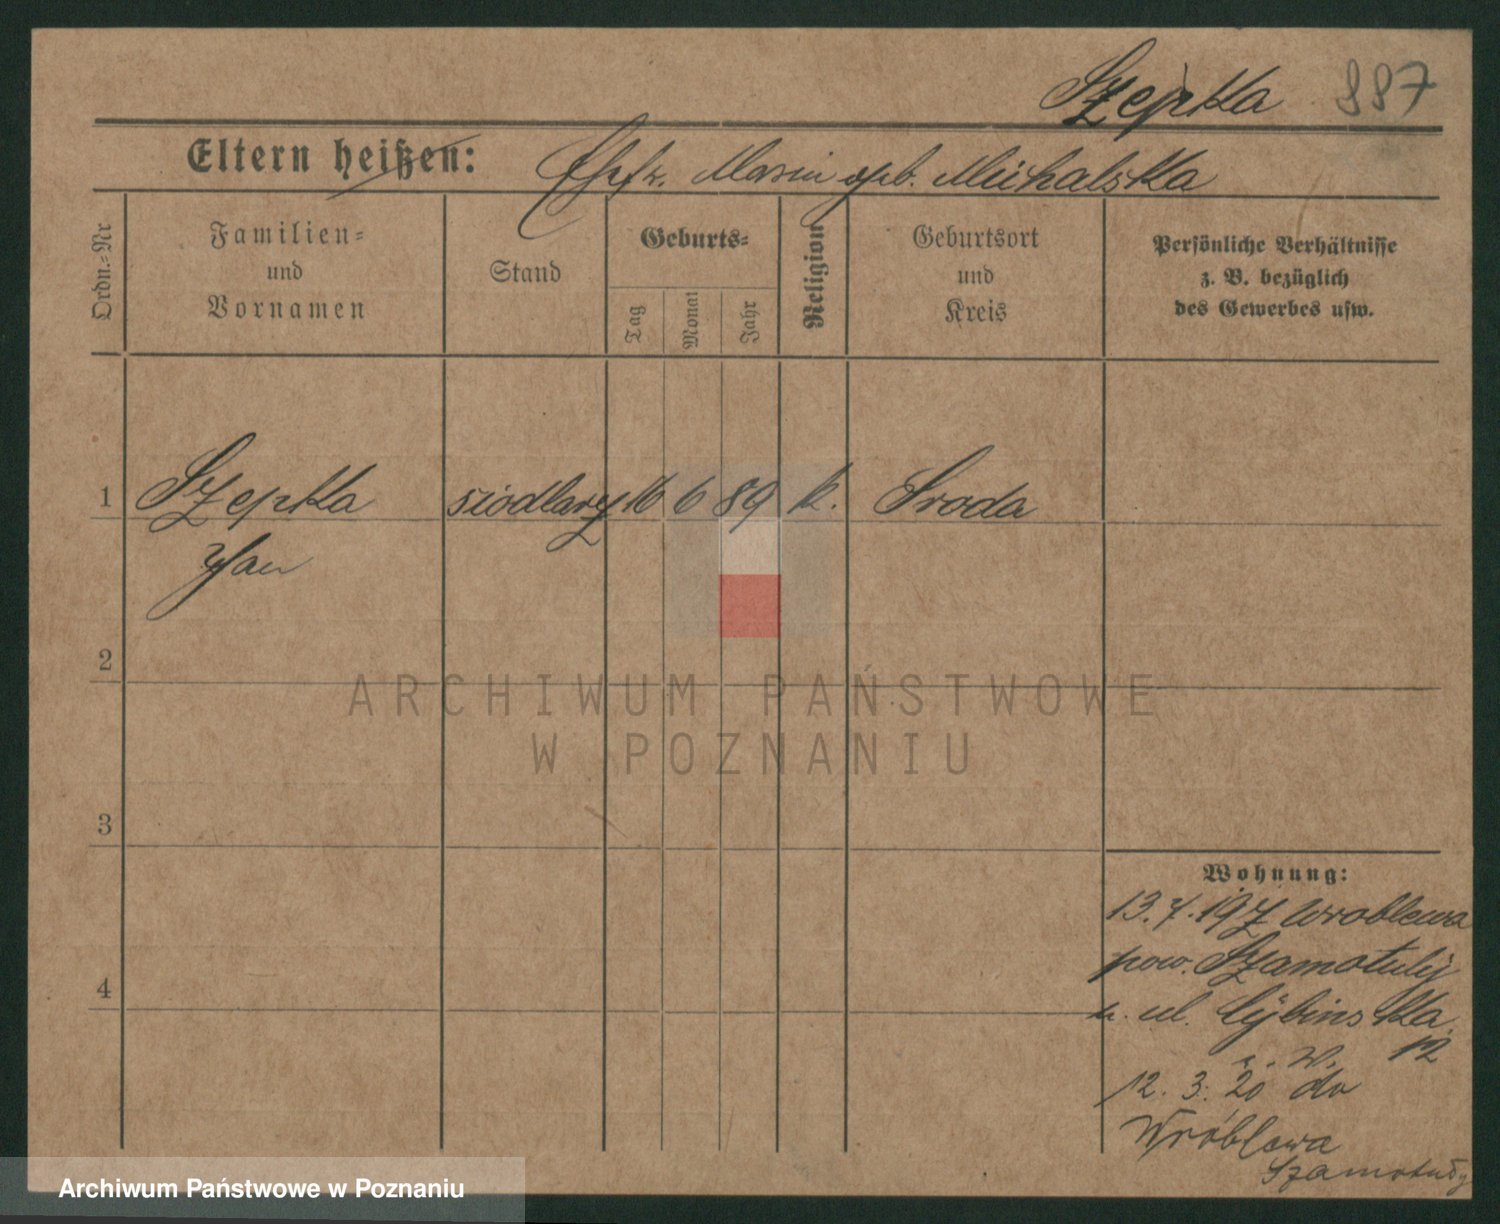 Szepka 887
Eltern heißen: Ehefr. Maria geb. Michalska
Ordn.-Nr
Familien-
und
Vornamen
Stand
Geburts-
Tag
Monat
Jahr
Religion
Geburtsort
und
Kreis
Persönliche Verhältnisse
z. B. bezüglich
des Gewerbes usw.
1 Szepka siodlarz 16 6 89 k. Sroda
Jan
2
3
4
Wohnung:
13.7.19 z Wroblewa
pow. Szamotuly
n. ul. Cybinska
12
12. 3. 20 do
Wróblewa
Szamotuły
ARCHIWUM PAŃSTWOWE
W POZNANIU
Archiwum Państwowe w Poznaniu